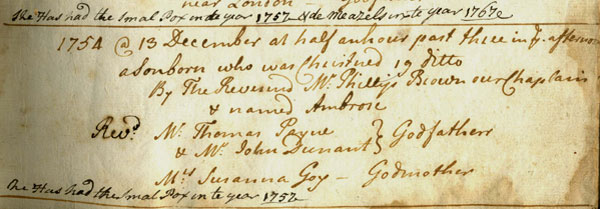 near London
She Has had the Smal Pox in de year 1757 & de Meazels in te year 1767
1754 @ 13 December at half an hour past thee in ye. afternoon
a Son born who was Christned 19 ditto
By The Reverend Mr. Phillips Brown our Chaplain
& named Ambrose
Revd. Mr. Thomas Payne } Godfathers
& Mr. John Dunant
Mrs Susanna Goy – Godmother
He Has had the Smal Pox in te year 1757